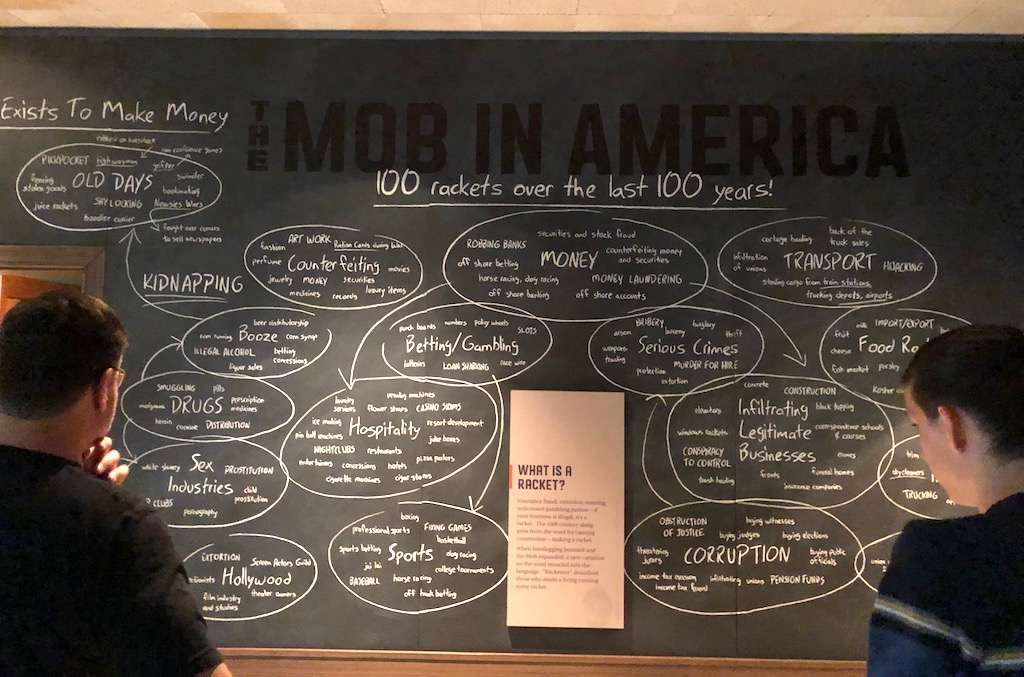 Exists To Make Money
THE MOB IN AMERICA
100 rackets over the last 100 years!
PICKPOCKET highwaymen
grifter
swindler
fencing
stolen goods
OLD DAYS
bookmaking
juice rackets
SHYLOCKING
Newsies Wars
fought over corners
to sell newspapers
KIDNAPPING
ART WORK Ration Cards during War
fashion
perfume Counterfeiting movies
jewelry MONEY securities
luxury items
medicines records
securities and stock fraud
ROBBING BANKS
counterfeiting money
and securities
off shore betting MONEY
horse racing, dog racing MONEY LAUNDERING
off shore banking off shore accounts
back of the
truck sales
cartage
infiltration
of unions
TRANSPORT HIJACKING
stealing cargo from train stations,
trucking depots, airports
beer distributorship
Booze corn syrup
ILLEGAL ALCOHOL betting
concessions
liquor sales
punch boards numbers policy wheels SLOTS
Betting/Gambling
lotteries LOAN SHARKING race wire
BRIBERY burglary
arson larceny theft
weapons
Serious Crimes
MURDER FOR HIRE
protection
extortion
fruit milk IMPORT/EXPORT
cheese Food
fish market parsley
Kosher
SMUGGLING pills
prescription
medicines
marijuana DRUGS
heroin cocaine DISTRIBUTION
vending machines
laundry
services flower shops CASINO SKIMS
ice making Hospitality resort development
pin ball machines juke boxes
NIGHTCLUBS restaurants
pizza parlors
entertainers concessions hotels
cigarette machines cigar stores
concrete CONSTRUCTION
elevators Infiltrating
Legitimate
Businesses
block busting
correspondence schools
& courses
windows rackets
CONSPIRACY
TO CONTROL
trash hauling
fronts funeral homes
insurance companies
white slavery Sex PROSTITUTION
Industries child
prostitution
CLUBS
pornography
drycleaners
TRUCKING
EXTORTION Screen Actors Guild
Hollywood
film industry
and studios
theater owners
boxing
professional sports FIXING GAMES
basketball
sports betting Sports dog racing
jai lai
college tournaments
BASEBALL horse racing
off track betting
WHAT IS A
RACKET?
Insurance fraud, extortion, running
unlicensed gambling parlors—if
your business is illegal, it's a
racket. The 19th-century slang
grew from the word for causing
commotion—making a racket.
When bootlegging boomed and
the Mob expanded, a new variation
on the word muscled into the
language. "Racketeer" described
those who made a living running
some racket.
OBSTRUCTION
OF JUSTICE
buying witnesses
buying judges buying elections
threatening
jurors
CORRUPTION buying public
officials
income tax evasion infiltrating unions PENSION FUNDS
income tax fraud
union